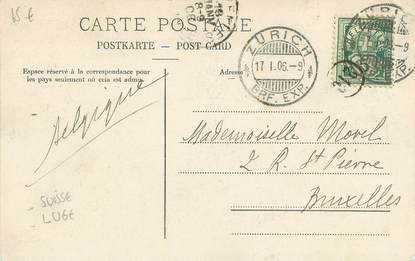 15 €
CARTE POSTALE
POSTKARTE — POST CARD
Espace réservé à la correspondance pour
les pays seulement où ceia est admis.
Adresse
ZÜRICH
17. I. 06. – 9
BRF. EXP.
Belgique
Mademoiselle Morel
2 R. St Pierre
Bruxelles
SUISSE
LUGE